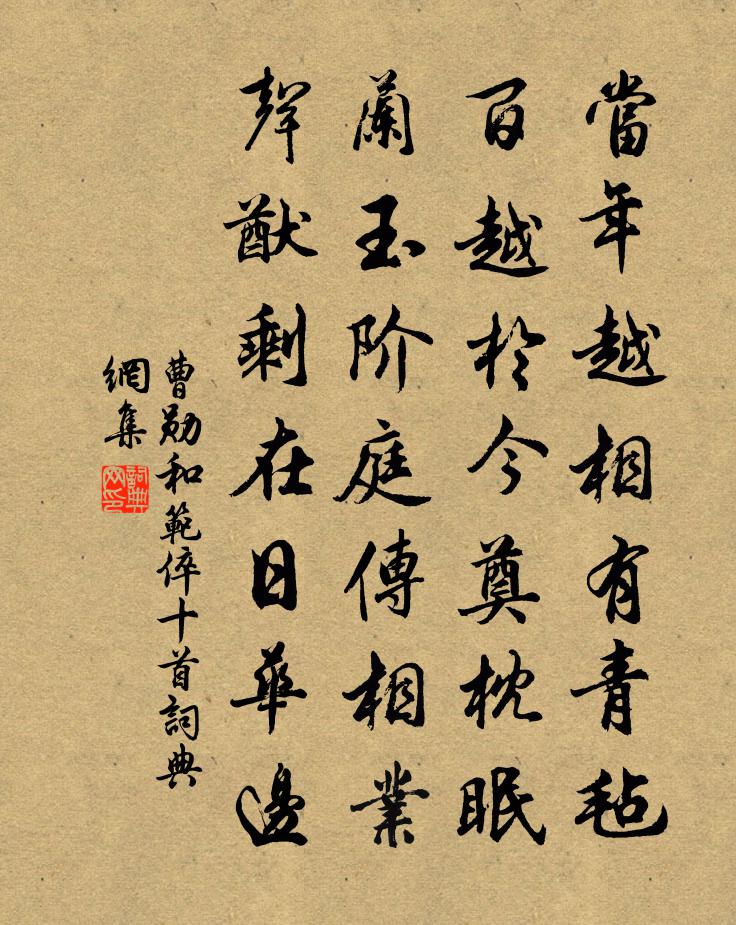 當年越相有青氈
百越於今奠枕眠
蘭玉阶庭傳相業
聲猷剩在日華邊
曹勛和範倅十首詞典
網集
詞典
网印